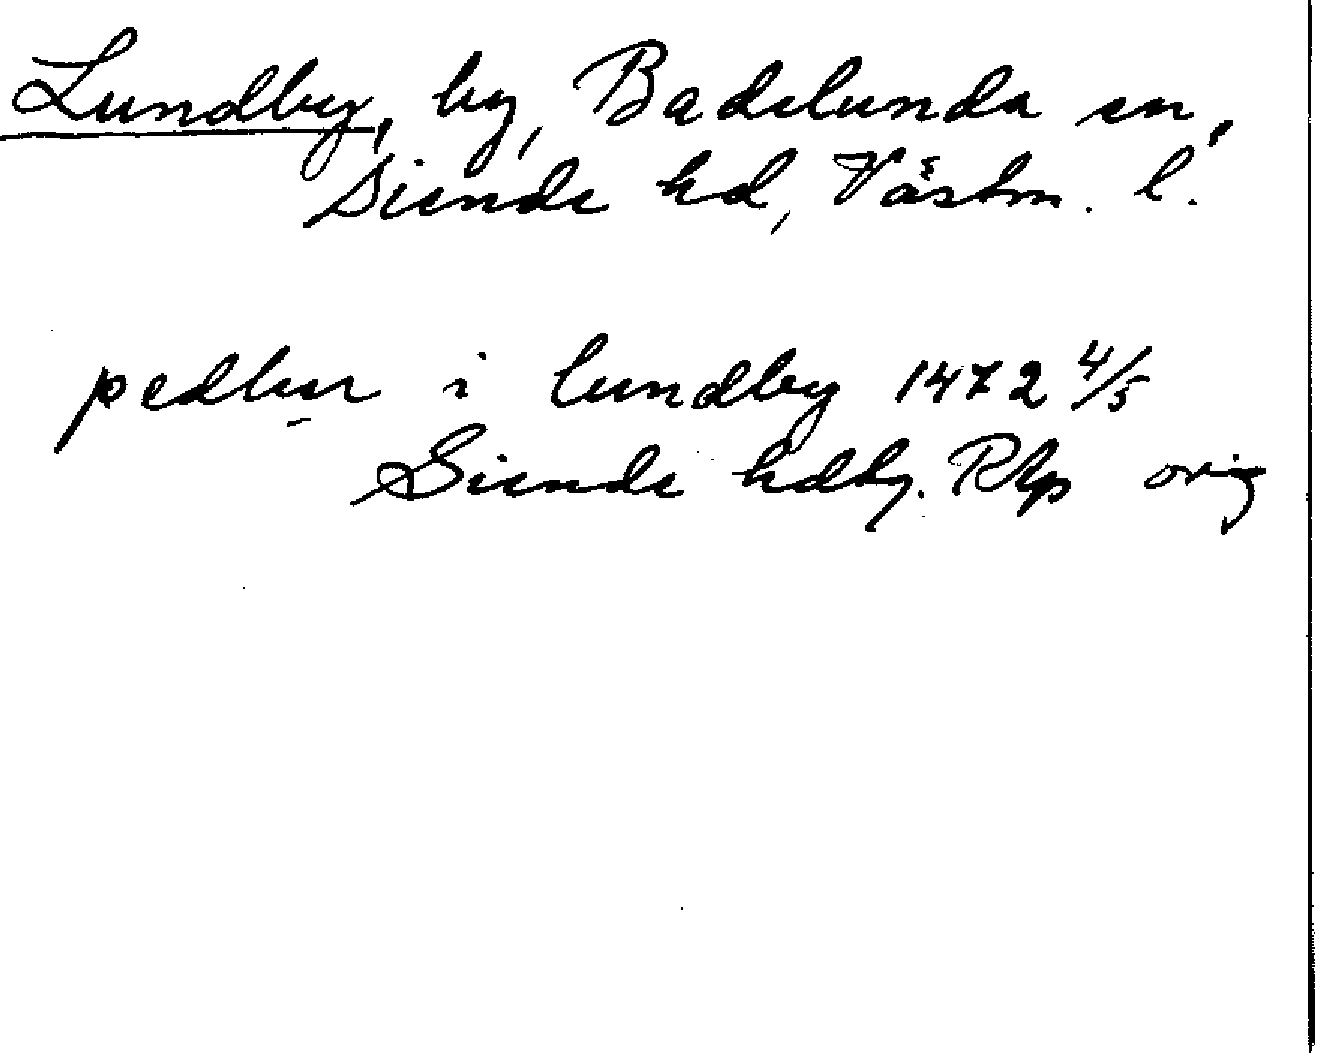 Lundby, by, Badelunda sn,
Siende hd, Västm. l.
pedhur i lundby 1472 4/5
Siende hdbg. RAp orig